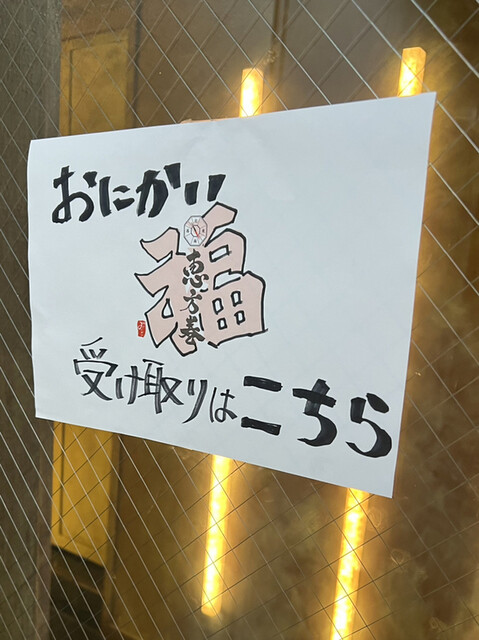 おにかい
福
恵方巻
受け取りはこちら